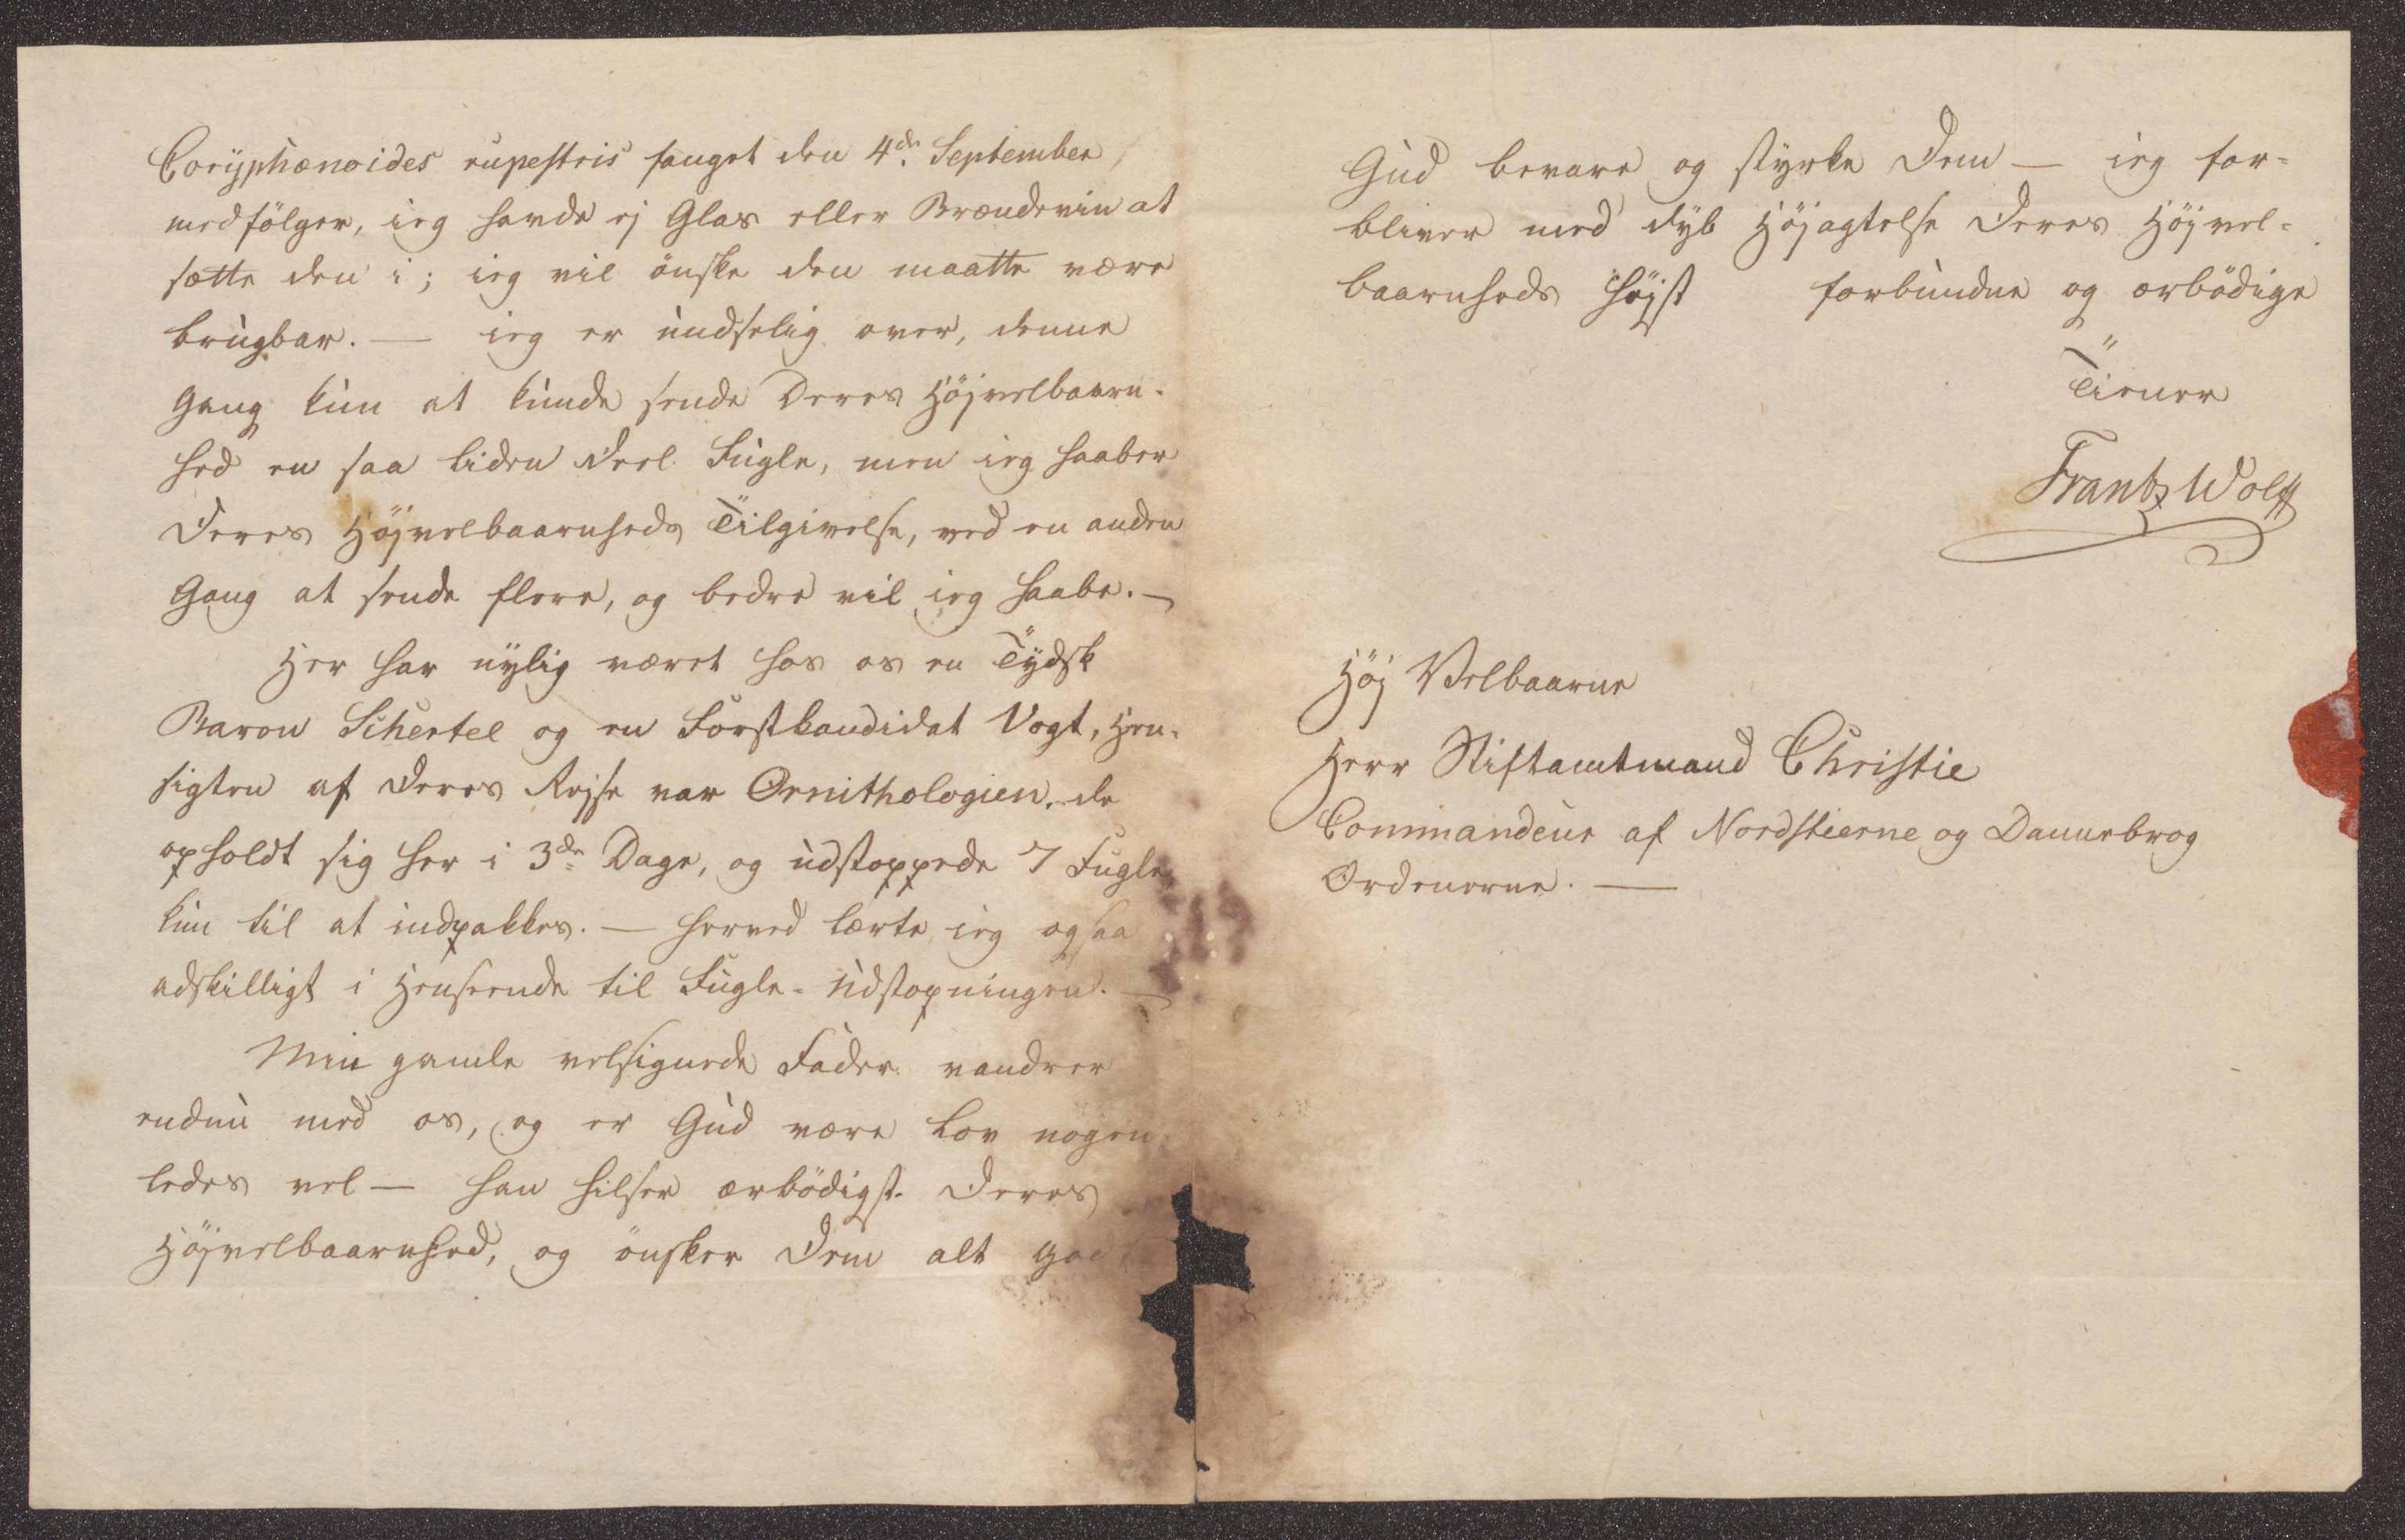 Corÿphænoides rupestris fanget den 4de September,
medfölger, ieg havde ej Glas eller Brændeviin at
sætte den i; ieg vil önske den maatte være
brugbar. — ieg er undselig over, denne
Gang kun at kunde sende Deres Höjvelbaarn-
hed en saa liden Deel Fugle, men ieg haaber
Deres Höjvelbaarnheds Tilgivelse, ved en anden
Gang at sende flere, og bedre vil ieg haabe. —
Her har nÿlig været hos os en Tÿdsk
Baron Schertel og en Forstkandidat Vogt, Hen-
sigten af deres Rejse var Ornithologien. de
opholdt sig her i 3de Dage, og udstoppede 7 Fugle
kun til at indpakkes. — herved lærte ieg ogsaa
adskilligt i Henseende til Fugle-Udstopningen. —
Min gamle velsignede Fader vandrer
endnu med os, og er Gud være Lov nogen-
ledes vel — han hilser ærbödigst Deres
Höjvelbaarnhed, og önsker Dem alt godt
Gud bevare og stÿrke Dem — ieg for-
bliver med dÿb Höjagtelse Deres Höjvel-
baarnheds höjst forbundne og ærbödige
Tiener
Frantz Wolff
Höj Velbaarne
Herr Stiftamtmand Christie
Commandeur af Nordstierne og Dannebrog
Ordenerne. —